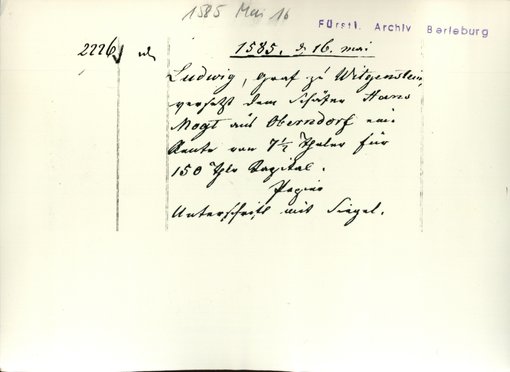 1585 Mai 16
Fürstl. Archiv Berleburg
2226
1585, d. 16. mai
Ludwig, Graf zu Witgenstein,
versetzt dem Schäfer Hans
Mogt aus Oberndorf ein
Rente von 7½ Thaler für
150 Thlr Capital.
Papier
Unterschrift mit Siegel.